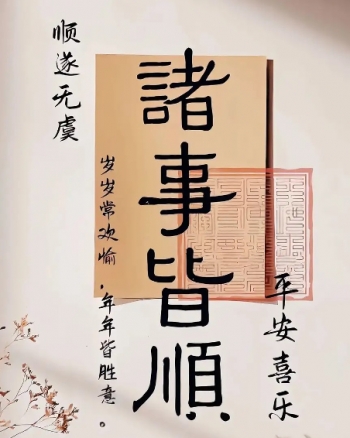 諸事皆順
顺遂无虞
岁岁常欢愉,年年皆胜意。
平安喜乐